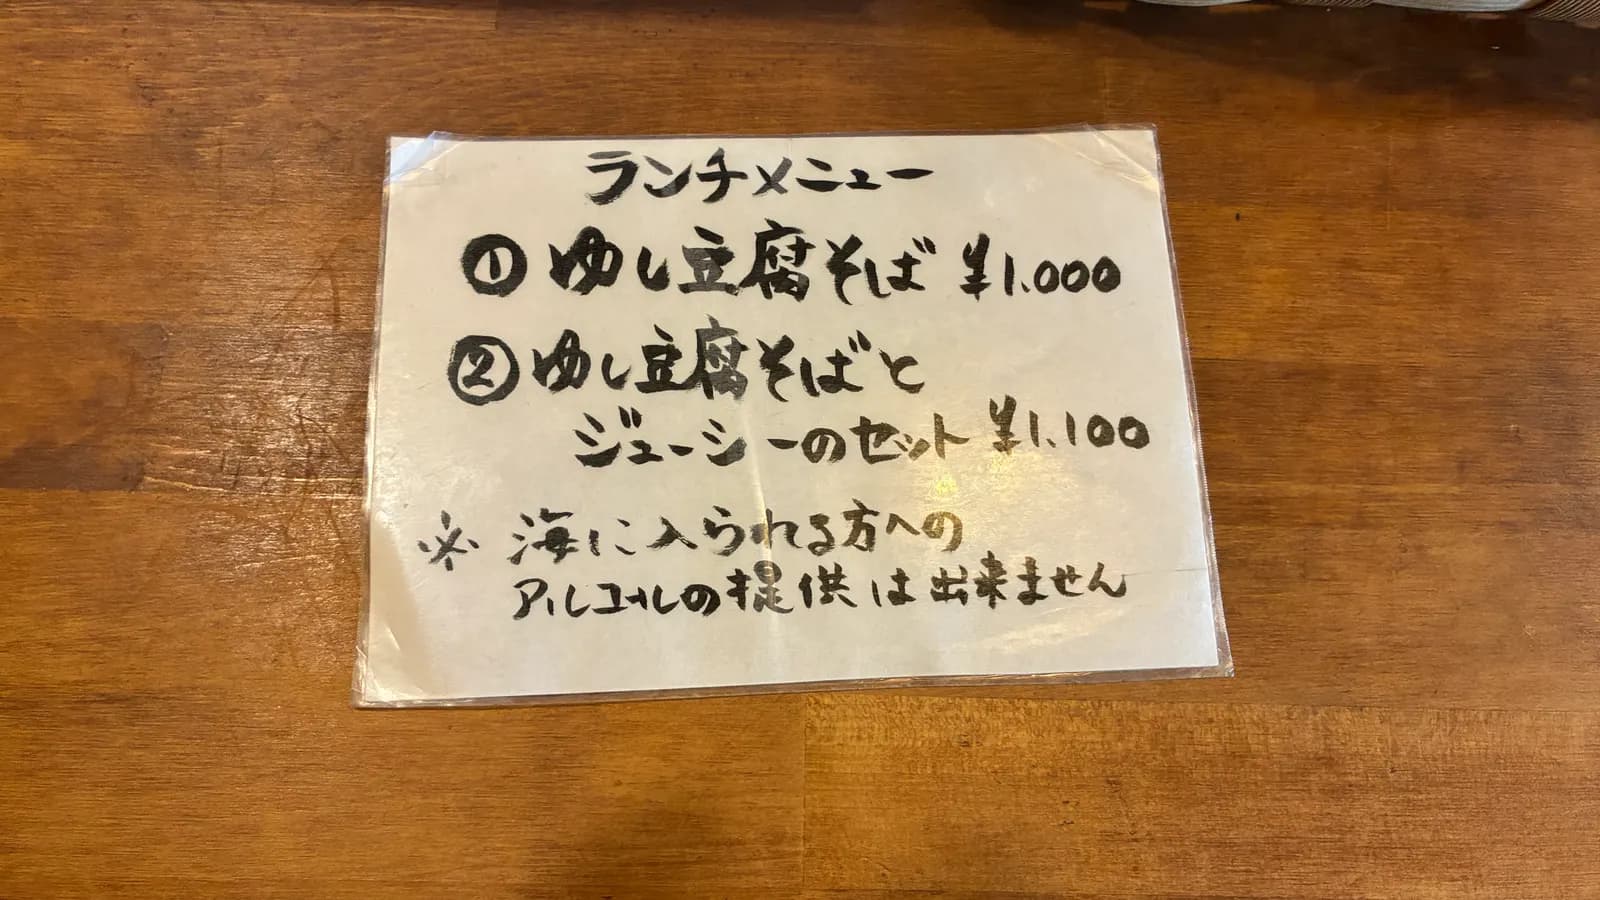 ランチメニュー
① ゆし豆腐そば ¥1.000
② ゆし豆腐そばと
ジューシーのセット ¥1.100
※ 海に入られる方への
アルコールの提供は出来ません